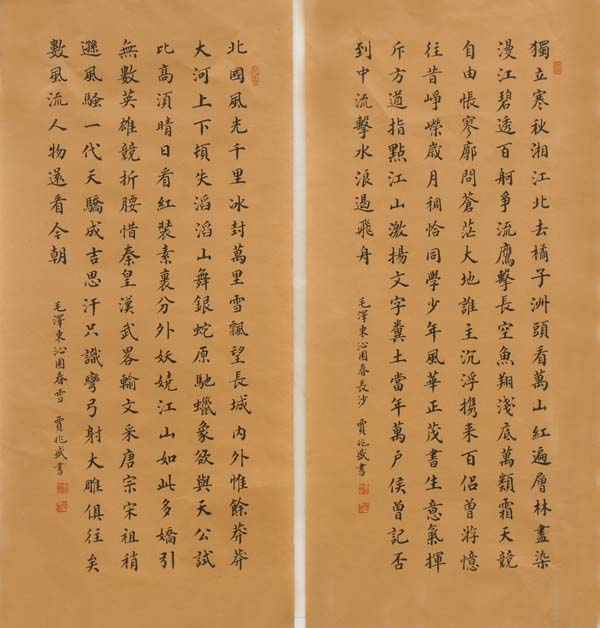 獨立寒秋湘江北去橘子洲頭看萬山紅遍層林盡染
漫江碧透百舸爭流鷹擊長空魚翔淺底萬類霜天競
自由悵寥廓問蒼茫大地誰主沉浮携来百侶曾游憶
往昔崢嶸歲月稠恰同學少年風華正茂書生意氣揮
斥方遒指點江山激揚文字糞土當年萬戶侯曾記否
到中流擊水浪遏飛舟
毛澤東沁園春長沙 賈兆盛書
北國風光千里冰封萬里雪飄望長城內外惟餘莽莽
大河上下頓失滔滔山舞銀蛇原馳蠟象欲與天公試
比高須晴日看紅裝素裹分外妖嬈江山如此多嬌引
無數英雄競折腰惜秦皇漢武畧輸文采唐宗宋祖稍
遜風騷一代天驕成吉思汗只識彎弓射大雕俱往矣
數風流人物還看今朝
毛澤東沁園春雪 賈兆盛書